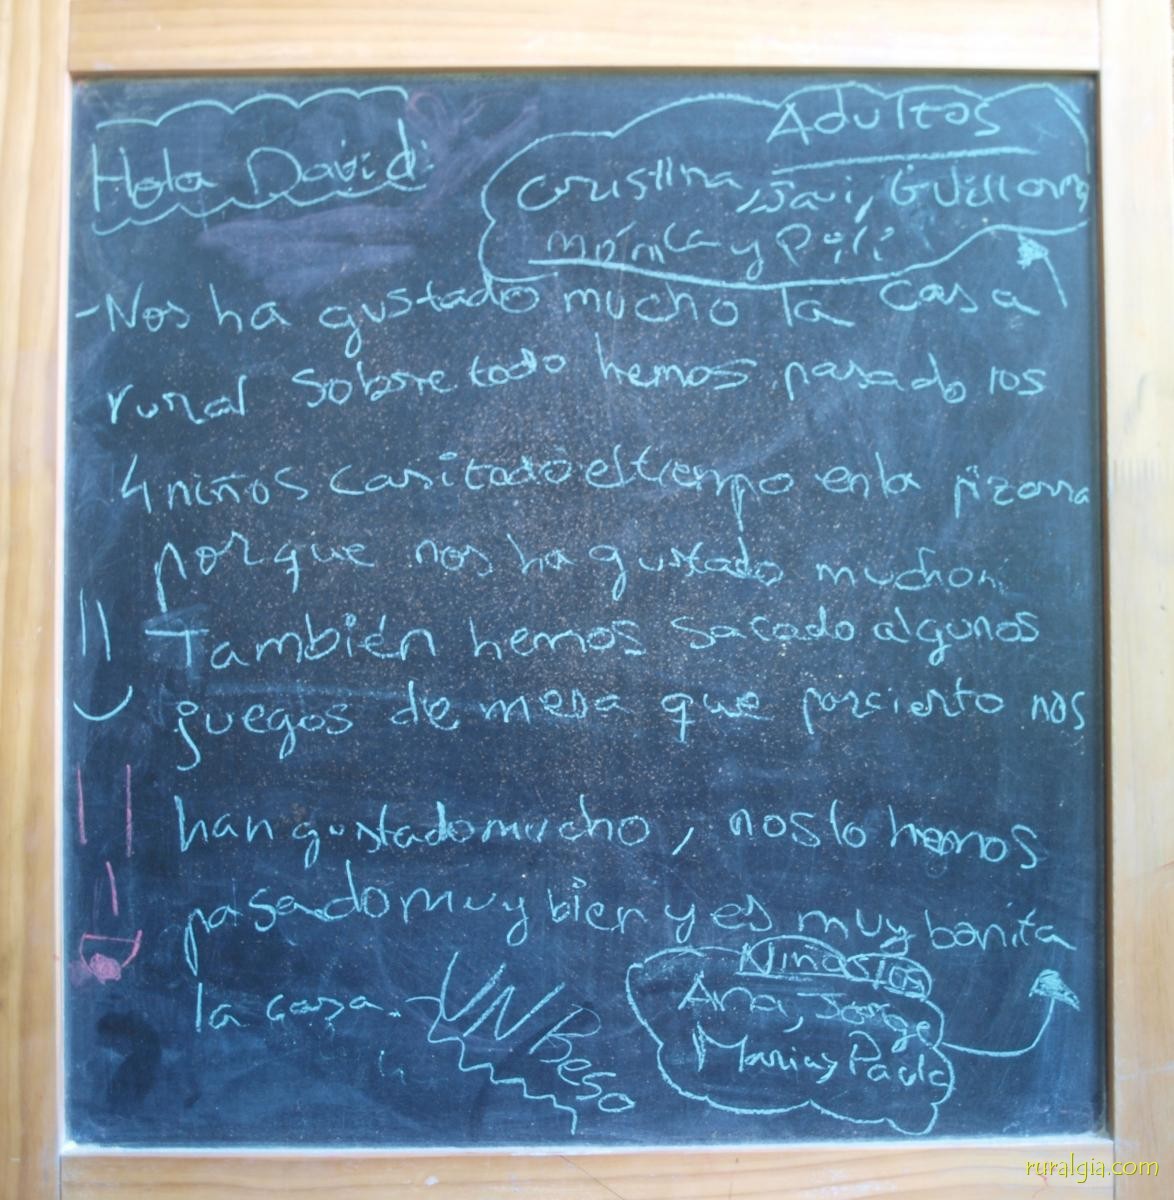 Hola David:
Adultos
Cristina, Javi, Guillermo,
Mónica y Pili
-Nos ha gustado mucho la casa
rural sobre todo hemos pasado los
4 niños casi todo el tiempo en la pizarra
porque nos ha gustado mucho
También hemos sacado algunos
juegos de mesa que por cierto nos
han gustado mucho, nos lo hemos
pasado muy bien y es muy bonita
la casa.
UN Beso
Niños/as
Ana, Jorge
Maria y Paula
ruralgia.com